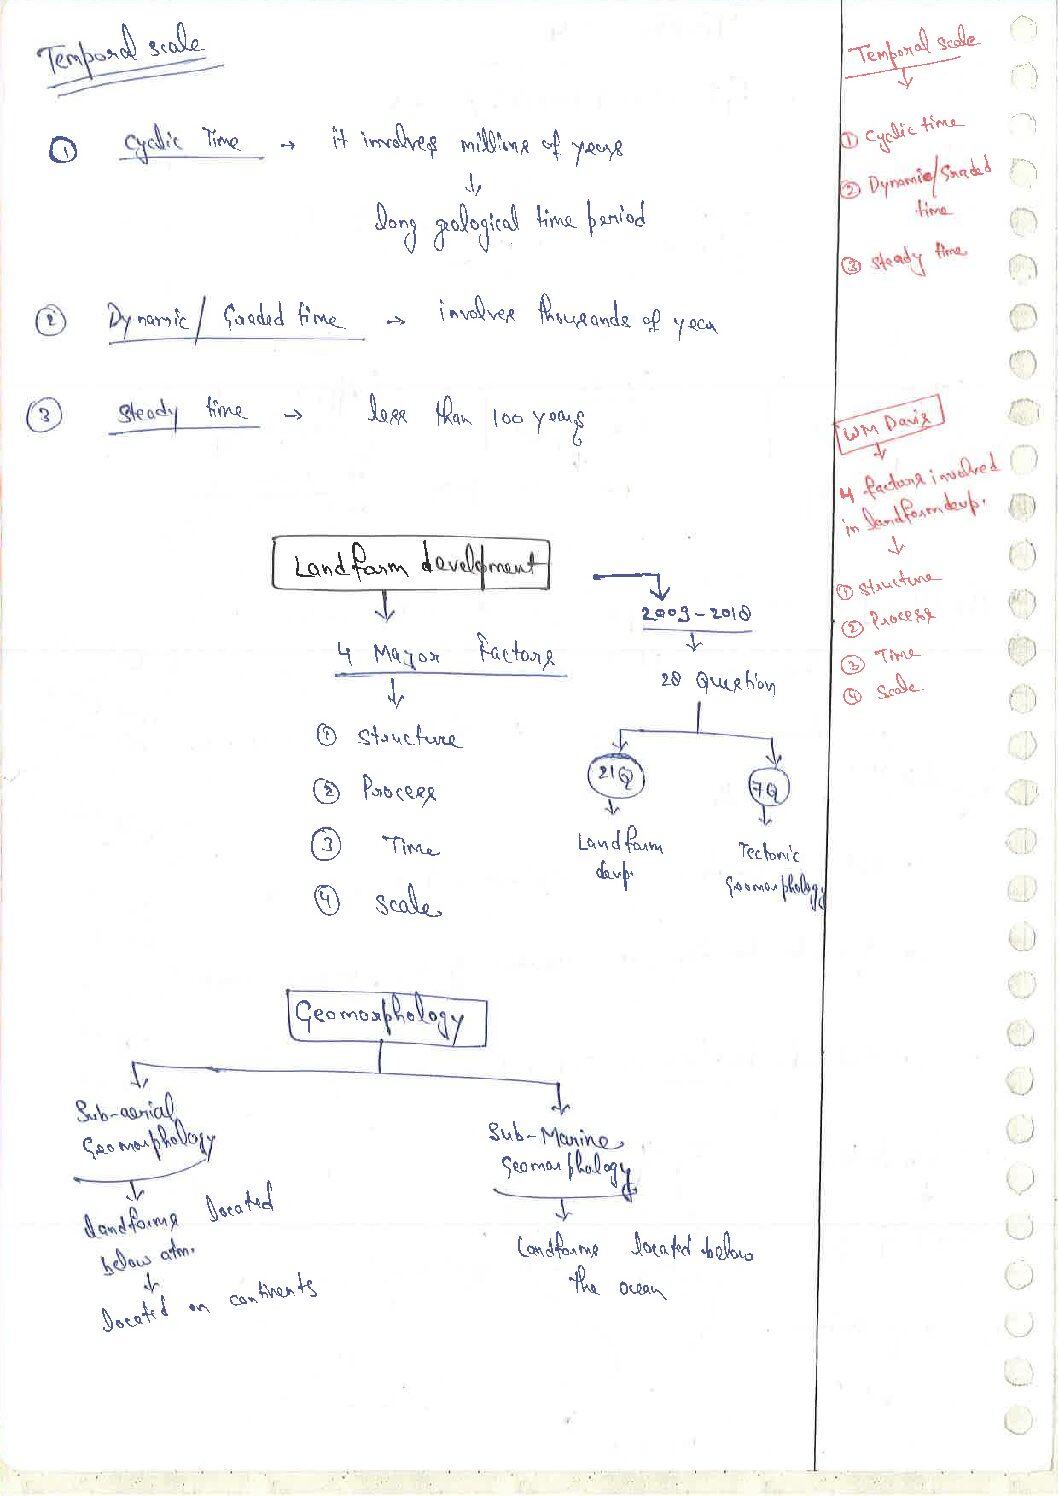 Temporal scale
① Cyclic Time → it involves millions of years
↓
long geological time period
② Dynamic/Graded time → involves thousands of year
③ Steady time → less than 100 years
Landform development
↓
4 Major Factors
↓
① Structure
② Process
③ Time
④ Scale
2009-2018
↓
28 Question
21Q
↓
Landform
devp.
7Q
↓
Tectonic
Geomorphology
Geomorphology
Sub-aerial
Geomorphology
↓
Landforms located
below atm.
↓
located on continents
Sub-Marine
Geomorphology
↓
Landforms located below
the ocean
Temporal scale
↓
① Cyclic time
② Dynamic/Graded
time
③ Steady time
WM Davis
↓
4 factors involved
in landform devp.
↓
① Structure
② Process
③ Time
④ Scale.